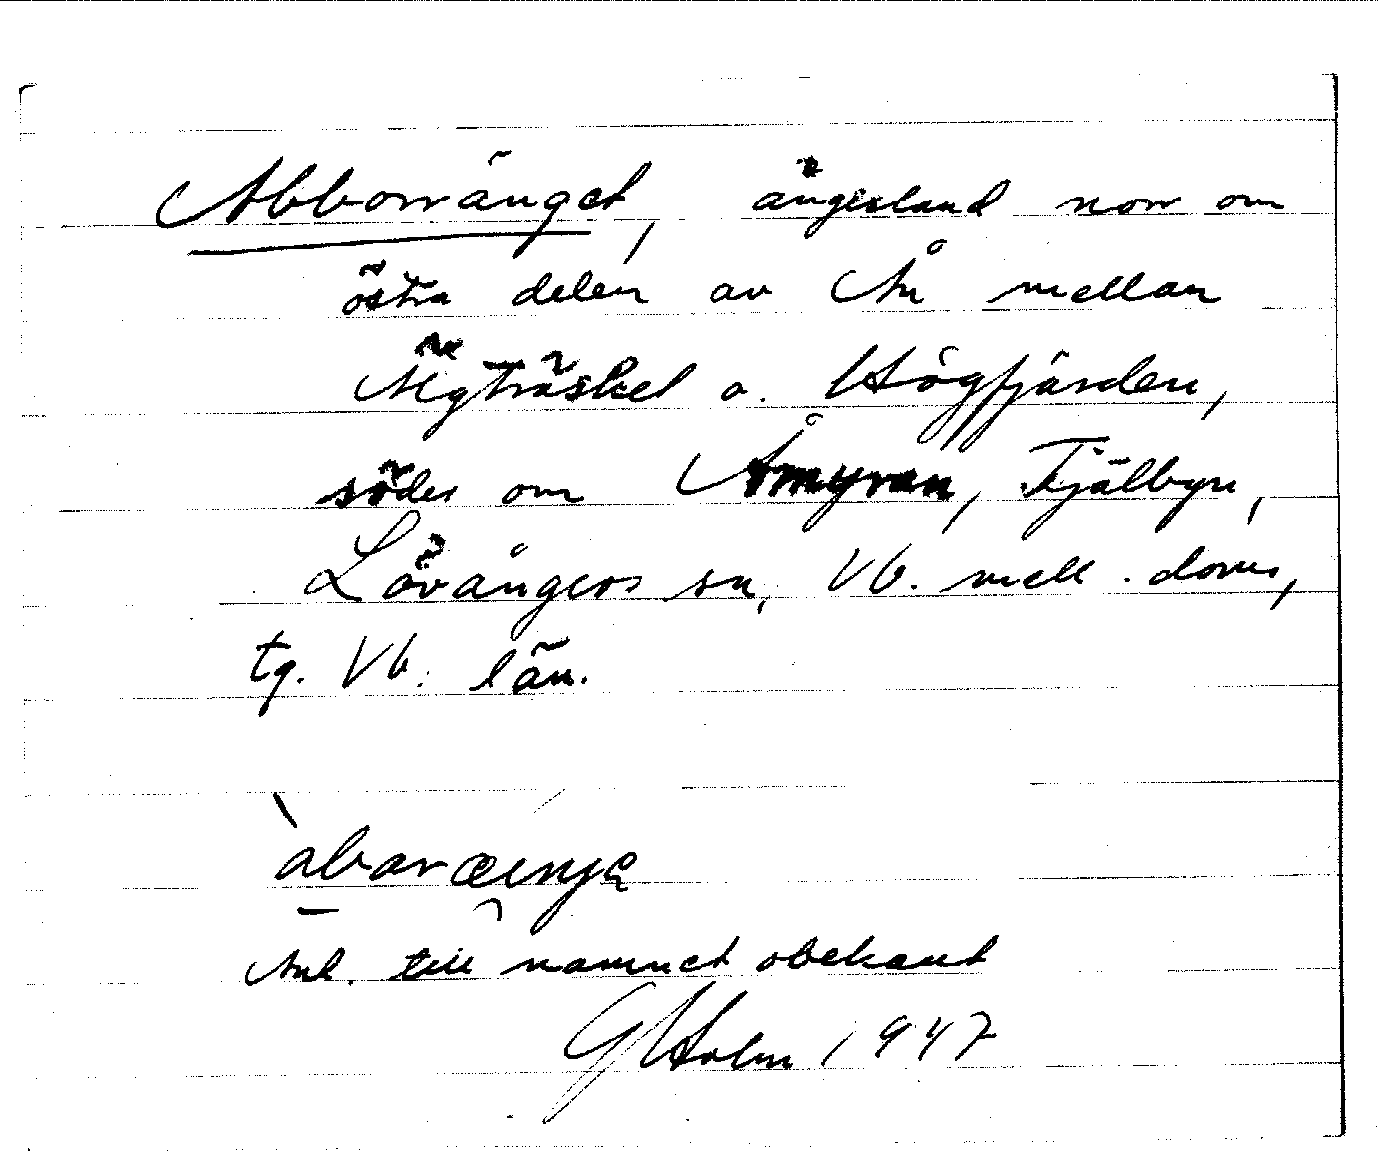 Abborränget, ängesland norr om
östra delen av Ån mellan
Älgträsket o. Högfjärden,
söder om Åmyran, Fjälbyn,
Lövångers sn, Vb. mell. doms,
tg. Vb. län.
àbaræinjɐ
Anl. till namnet obekant
G Holm 1947